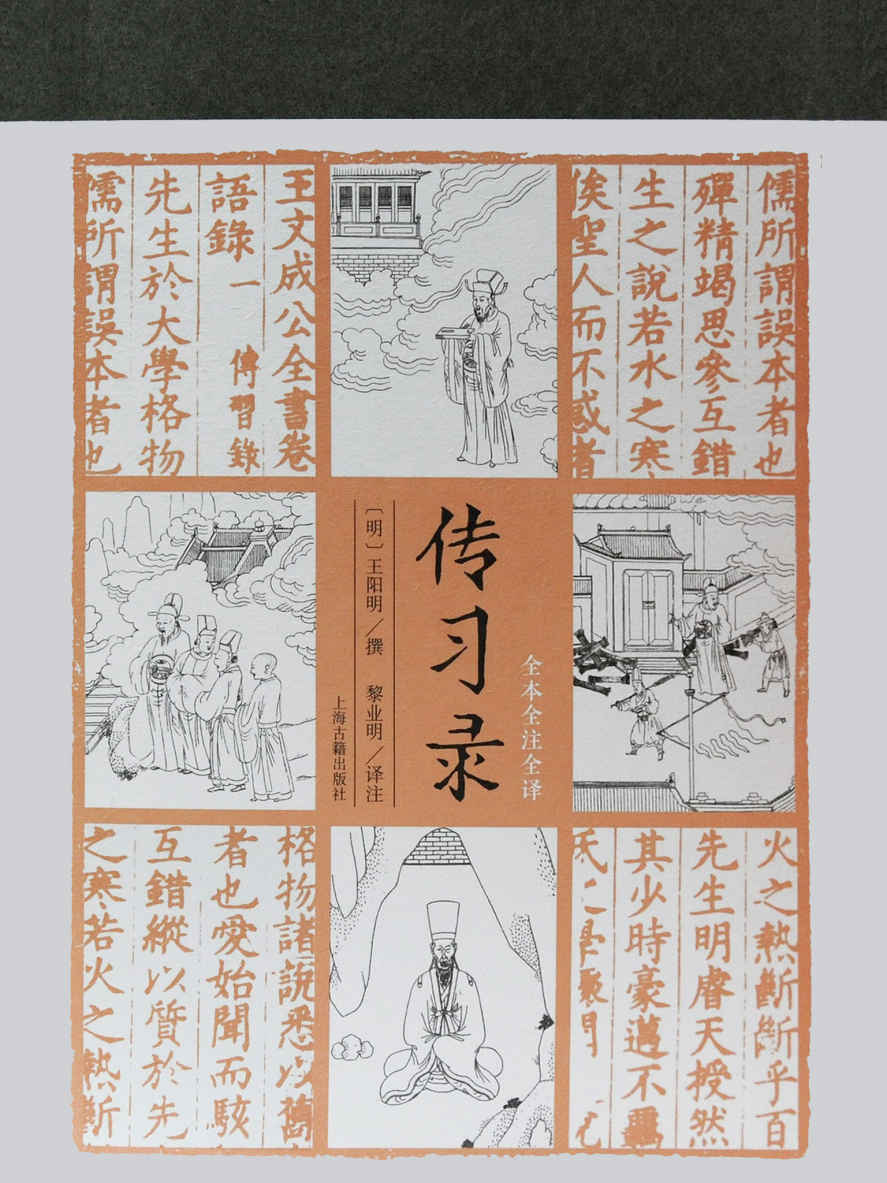 王文成公全書卷
語錄一 傳習錄
先生於大學格物
儒所謂誤本者也
儒所謂誤本者也
殫精竭思參互錯
生之說若水之寒
俟聖人而不惑者
全本全注全译
传习录
〔明〕王阳明／撰 黎业明／译注
上海古籍出版社
格物諸說悉以舊
者也愛始聞而駭
互錯縱以質於先
之寒若火之熱斷
火之熱斷斷乎百
先生明睿天授然
其少時豪邁不羈